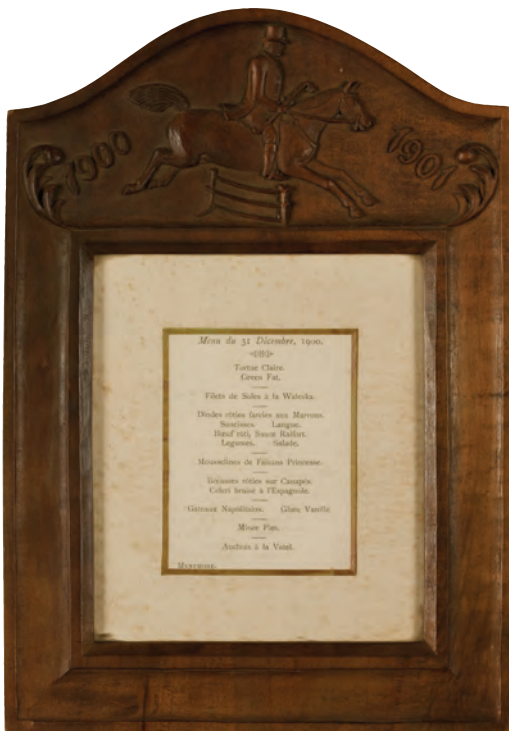 1900
1901
Menu du 31 Décembre, 1900.
Tortue Claire.
Green Fat.
Filets de Soles à la Waleska.
Dindes rôties farcies aux Marrons.
Saucisses. Langue.
Bœuf rôti, Sauce Raifort.
Legumes. Salade.
Mousselines de Faisans Princesse.
Bécasses rôties sur Canapés.
Celeri braisé à l'Espagnole.
Gateaux Napolitains. Glace Vanille
Mince Pies.
Anchois à la Vatel.